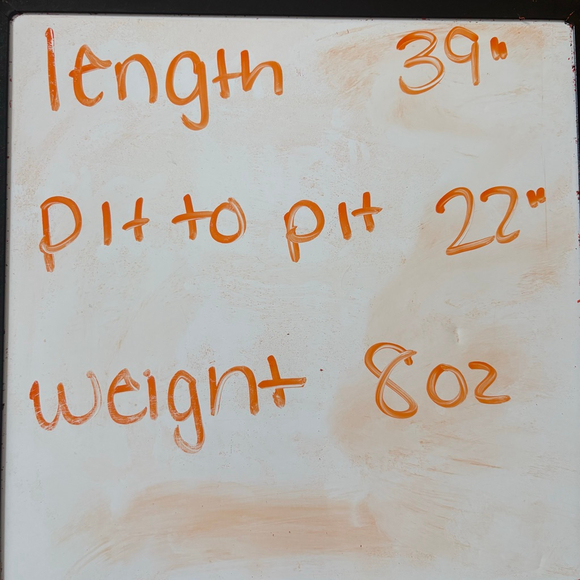 length 39"
pit to pit 22"
weight 8oz